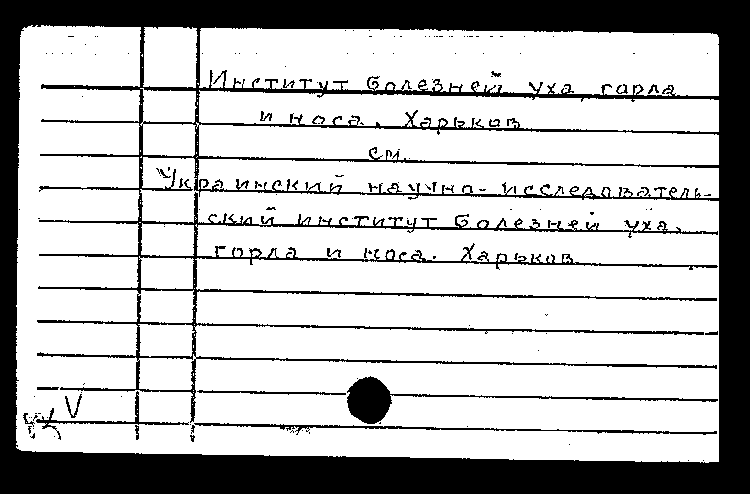 Институт болезней уха, горла
и носа. Харьков
см.
Украинский научно-исследователь-
ский институт болезней уха,
горла и носа. Харьков.
V